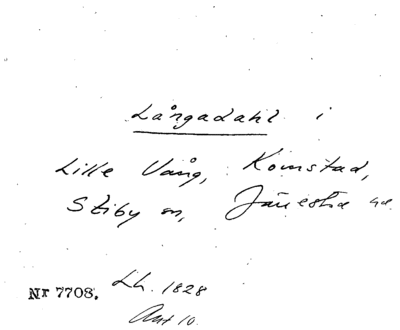 Långadahl i
Lille Vång, Komstad,
Stiby sn, Järrestad hd.
Nr 7708. Lh. 1828
Akt 10.